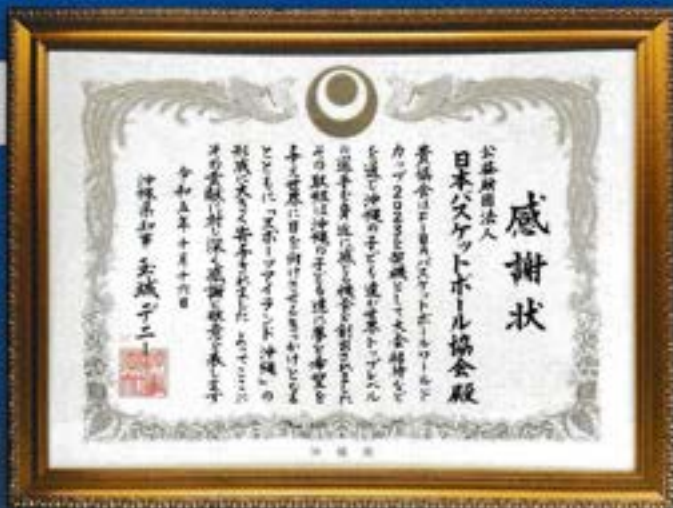 感謝状
公益財団法人
日本バスケットボール協会殿
貴協会はFIBAバスケットボールワールド
カップ2023を契機として大会招待など
を通じ沖縄の子ども達が世界トップレベル
の選手を身近に感じる機会を創出されました
その取組は沖縄の子ども達に夢と希望を
与え世界に目を向けさせるきっかけとなる
とともに「スポーツアイランド沖縄」の
形成に大きく寄与されました よってここに
その貢献に対し深く感謝と敬意を表します
令和五年十月十六日
沖縄県知事 玉城デニー
沖縄県